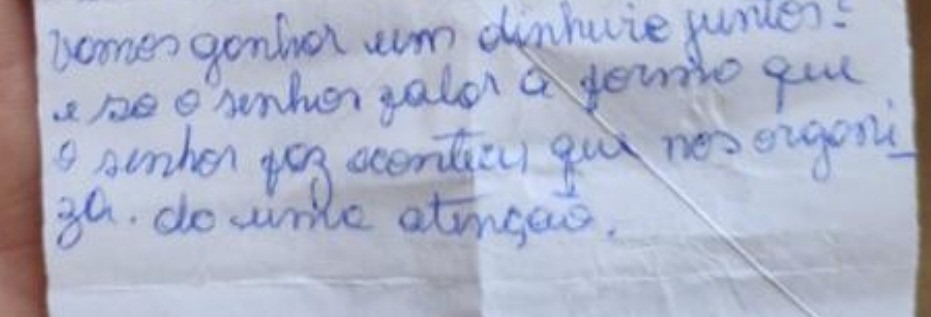 vamos ganhar um dinheiro juntos?
e so o senhor falar a forma que
o senhor faz acontecer que nos organi_
za. da uma atenção.